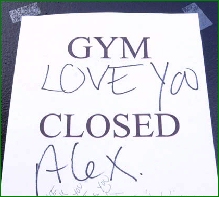 GYM
LOVE YOU
CLOSED
Alex.